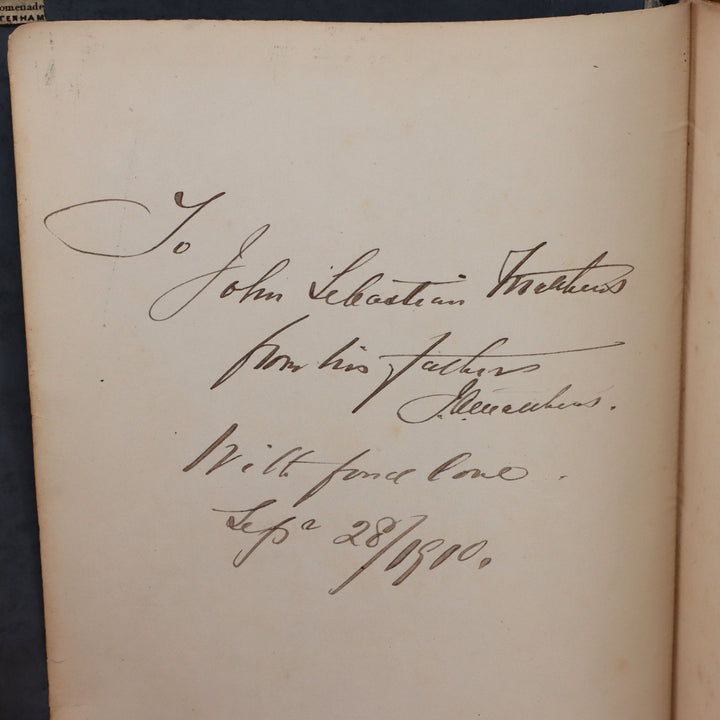 omenade
TENHAM
To
John Sebastian Matthews
from his fathers
J.A. Matthews.
With fond love.
Sepr 28/1910.